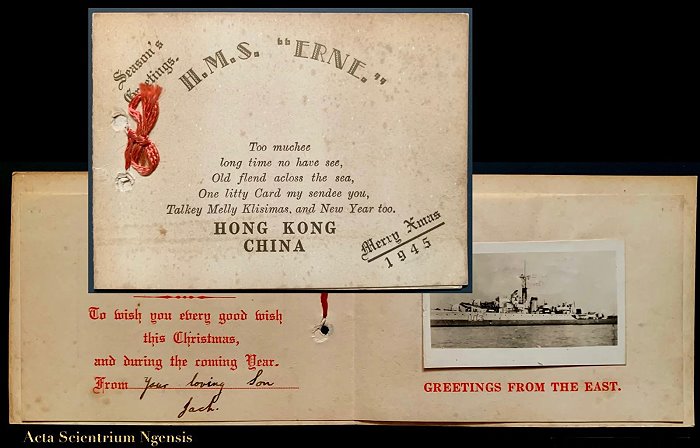 Season's
Greetings.
H.M.S. "ERNE."
Too muchee
long time no have see,
Old flend acloss the sea,
One litty Card my sendee you,
Talkey Melly Klisimas, and New Year too.
HONG KONG
CHINA
Merry Xmas
1945
To wish you every good wish
this Christmas,
and during the coming Year.
From Your loving Son
Jack.
GREETINGS FROM THE EAST.
Acta Scientrium Ngensis